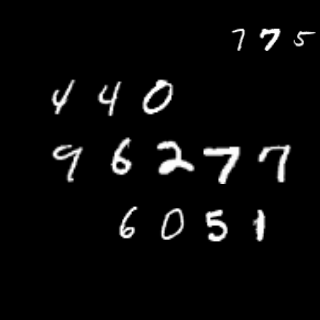 775
440
96277
6051